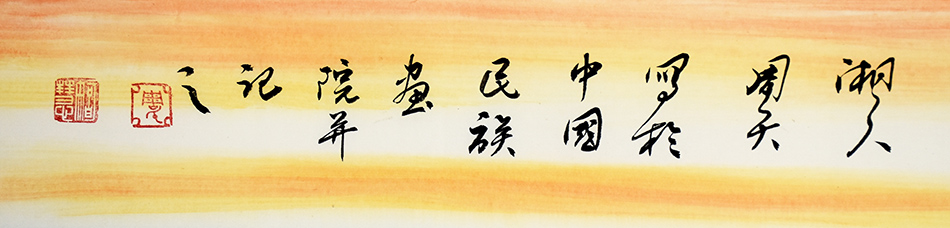 湘人
周天
寫於
中國
民族
畫
院并
记
之